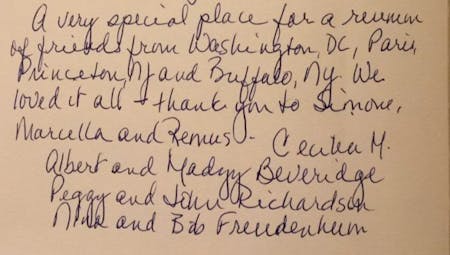 A very special place for a reunion
of friends from Washington, DC, Paris,
Princeton, NJ and Buffalo, Ny. We
loved it all + thank you to Simone,
Marcella and Remus - Cecilia M.
Albert and Madzy Beveridge
Peggy and John Richardson
Nina and Bob Freudenheim